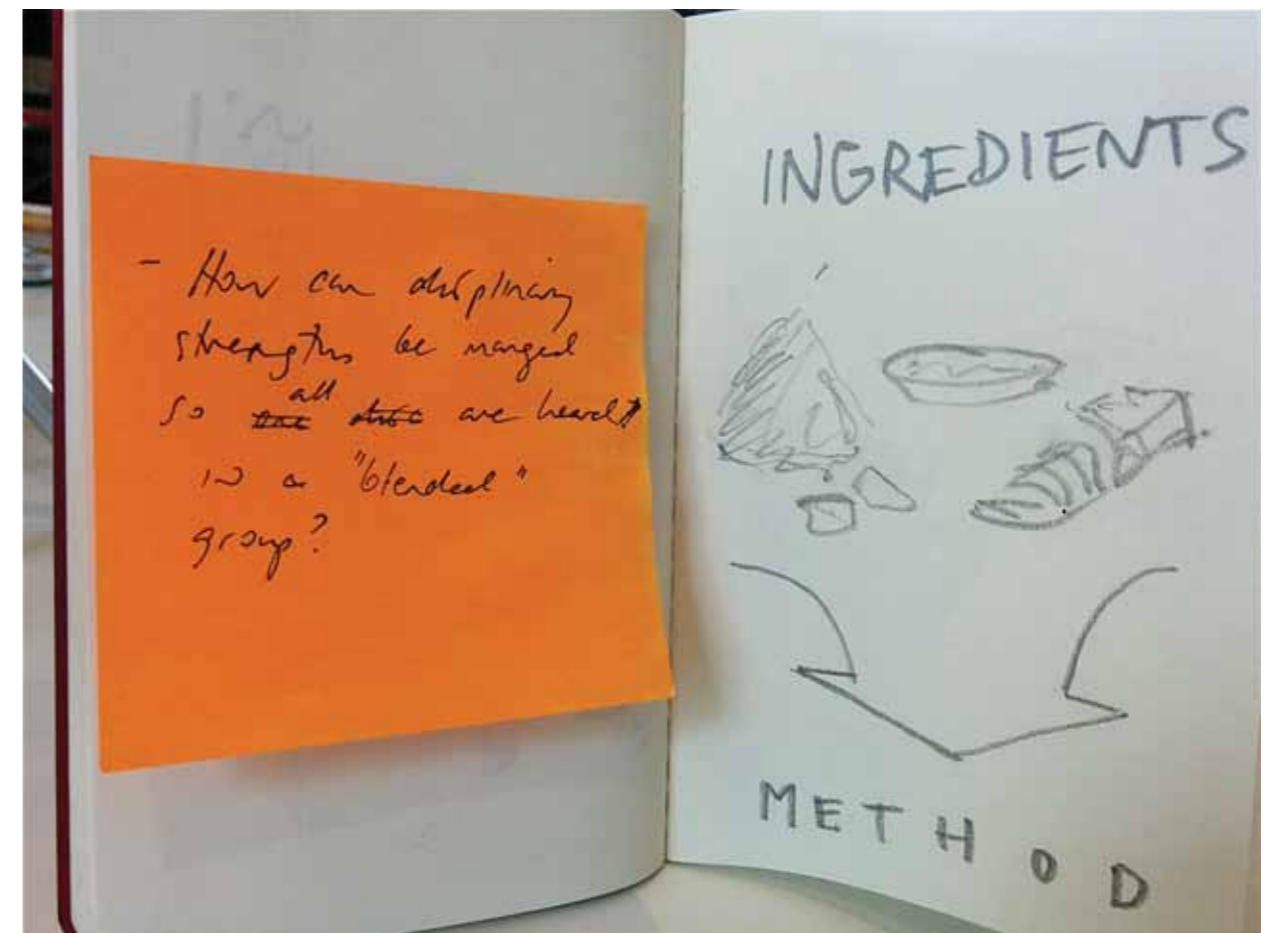 - How can disiplinary
strengths be manged
so all are heard
in a "blended"
group?
INGREDIENTS
METHOD